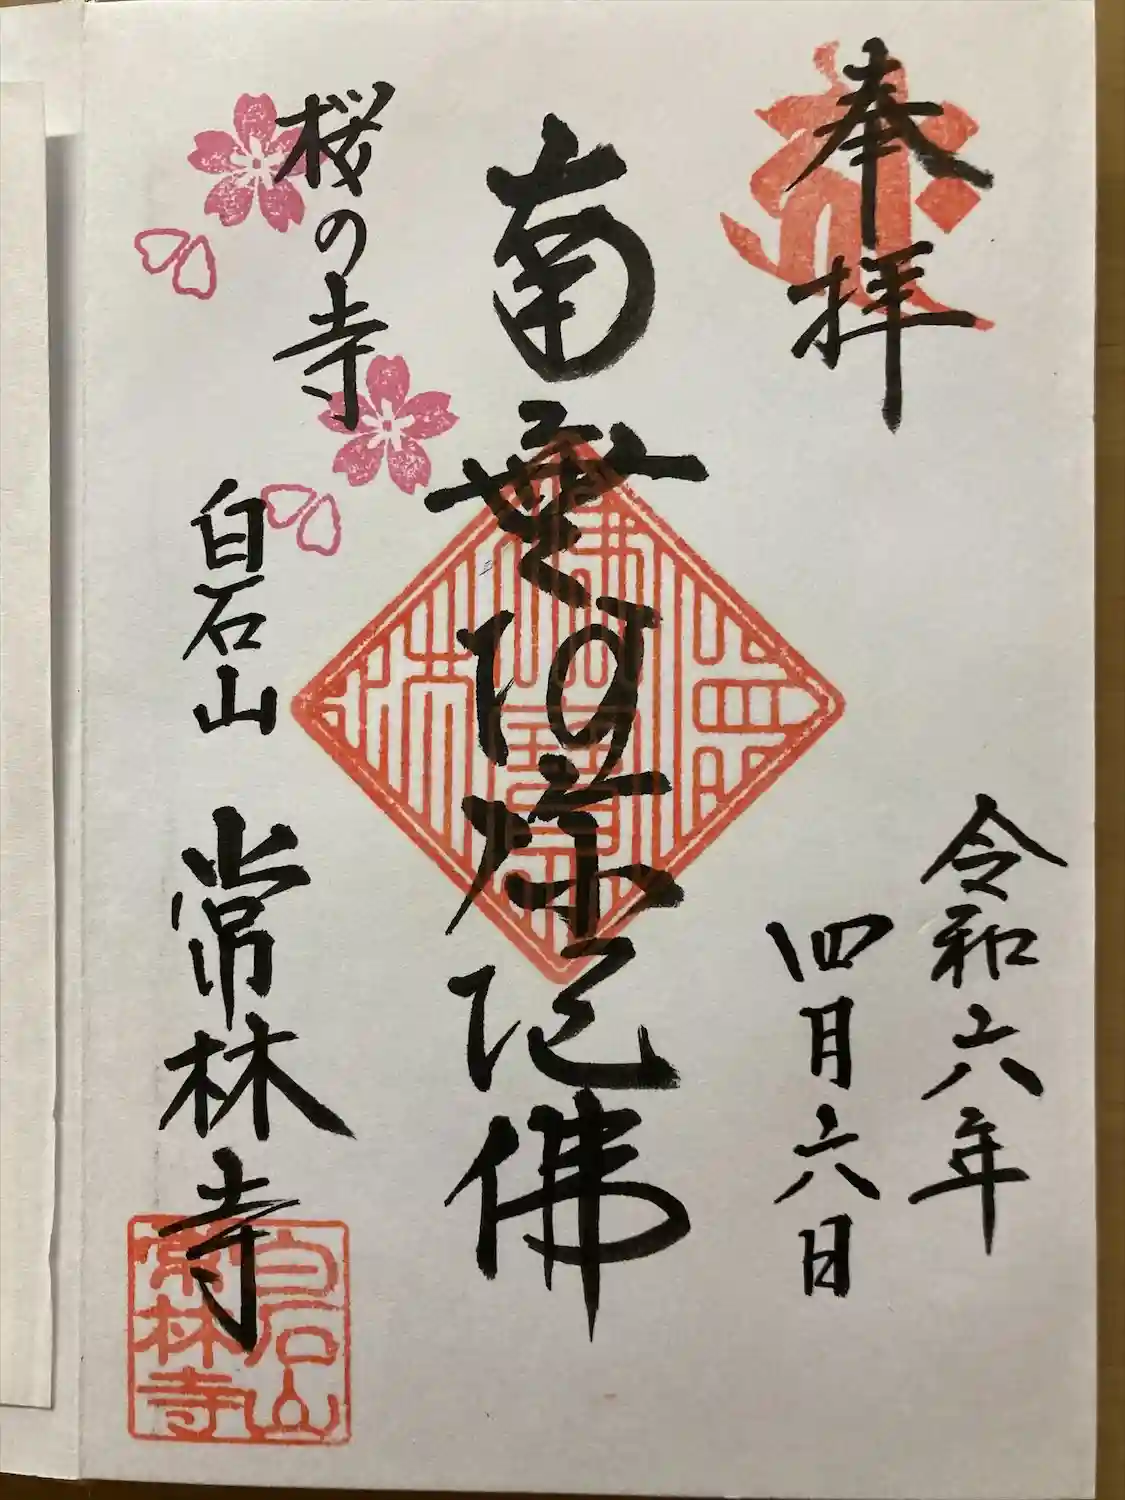 奉拝
令和六年
四月六日
南無阿弥陀佛
桜の寺
白石山
常林寺
佛法僧寳
白石山
常林寺